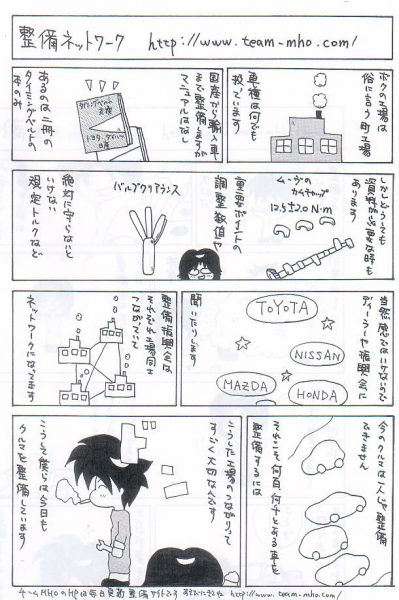 整備ネットワーク http://www.team-mho.com/
ボクの工場は
俗に言う町工場
車種は何でも
扱います
国産から輸入車
まで整備しますが
マニュアルはなし
タイミングベルト
トヨタ・ダイハツ
日産
あるのは二冊の
タイミングベルトの
本のみ
しかしどうしても
資料が必要な時も
あります
ムーヴの
カムキャップ
12.5±2.0 N・m
重要ポイントの
調整数値や
バルブクリアランス
絶対に守らないと
いけない
規定トルクなど
当然感ではいけないので
ディーラーや振興会に
聞いたりします
TOYOTA
NISSAN
MAZDA
HONDA
整備振興会は
それぞれ工場同士
つながっていて
ネットワークになってます
今のクルマは一人じゃ整備
できません
それこそ何百何千とある車を
整備するには
こうした工場のつながりって
すごく大切なんです
こうして僕らは今日も
クルマを整備しています
チームMHOのHPは毎日更新 整備サイトです http://www.team-mho.com/